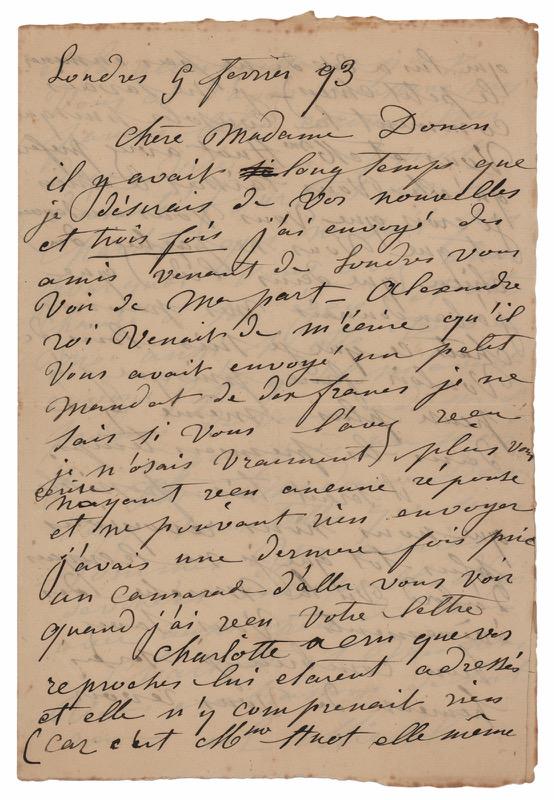 Londres 9 fevrier 93
Chère Madame Donon
il y avait si long temps que
je désirais de vos nouvelles
et trois fois j'ai envoyé des
amis venant de Londres vous
voir de ma part — Alexandre
roi venait de m'écrire qu'il
vous avait envoyé un petit
mandat de dix francs je ne
sais si vous l'avez reçu
je n'osais vraiment) plus vous
écrire
nayant reçu aucune réponse
et ne pouvant rien envoyer
j'avais une derniere fois prié
un camarade d'aller vous voir
quand j'ai reçu votre lettre
Charlotte a cru que vos
reproches lui etaient adressés
et elle n'y comprenait rien
(car c'est Mme Huot elle même